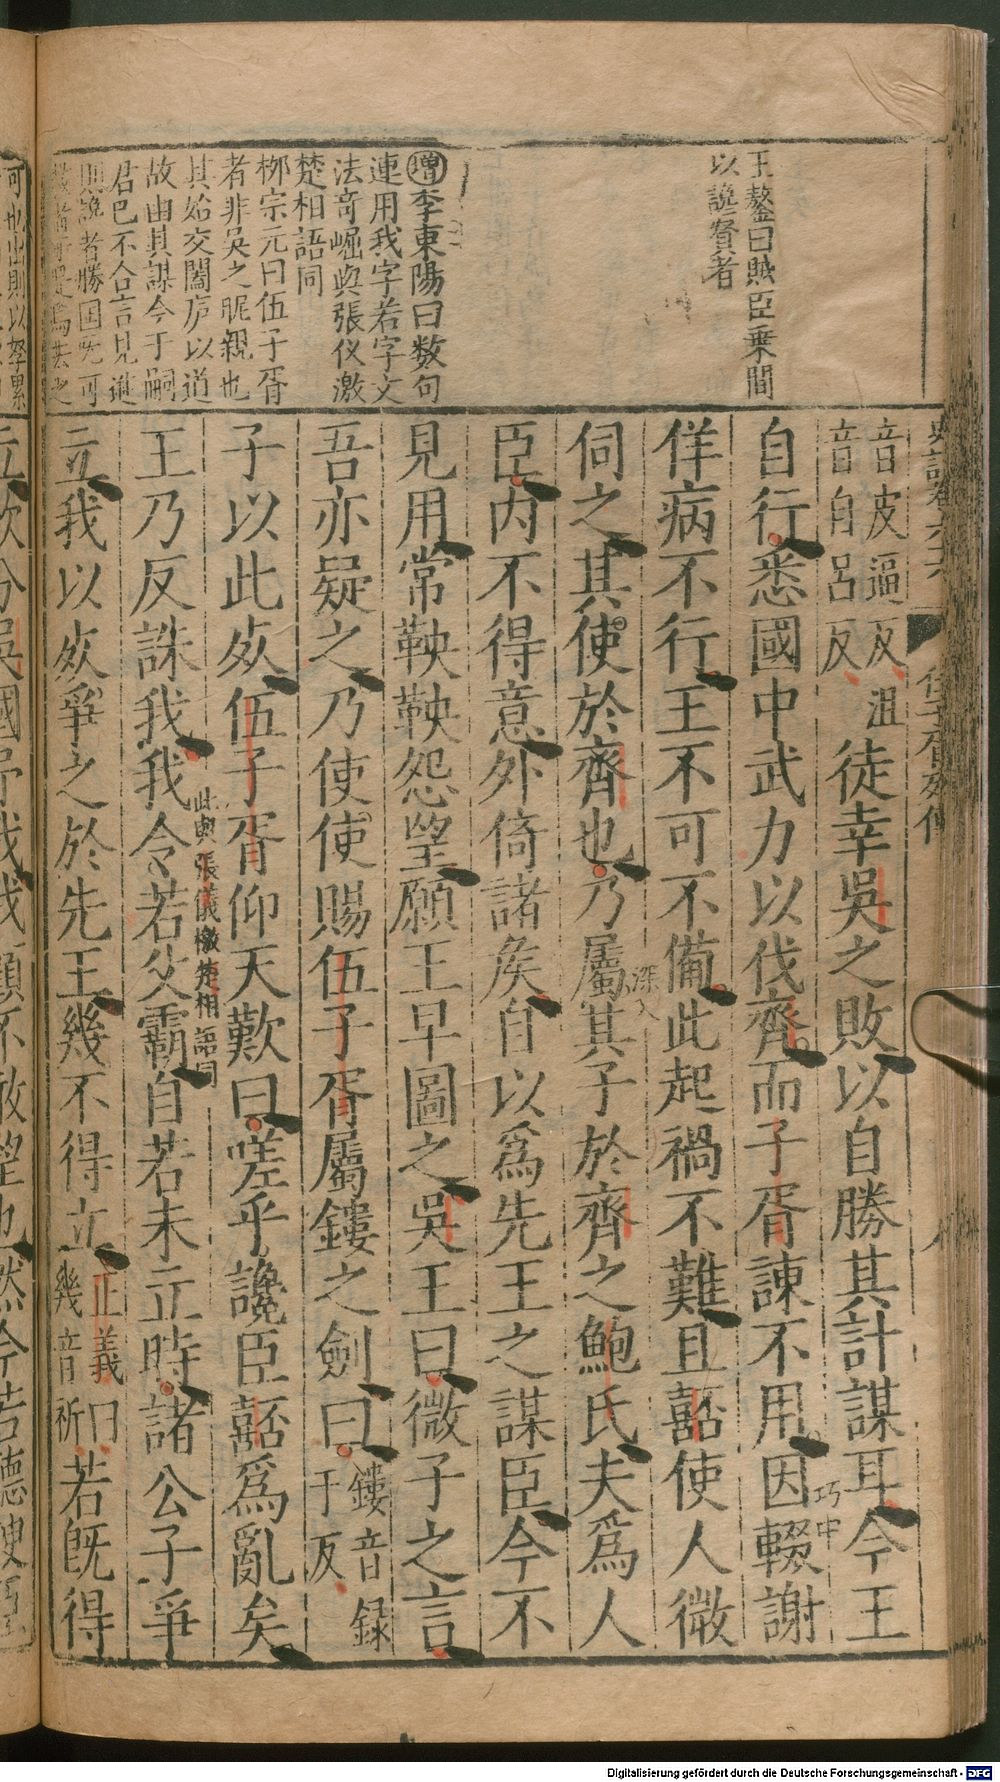 王鏊曰賊臣乗間
以讒賢者
增李東陽曰数句
連用我字若字文
法竒崛與張仪激
楚相語同
栁宗元曰伍子胥
者非吴之昵親也
其始交闔庐以道
故由其謀今于嗣
君巳不合言見進
則讒者勝国旣可
史記卷六十六
伍子胥列傳
音皮逼反 沮
音自呂反
徒幸吳之敗以自勝其計謀耳今王
自行悉國中武力以伐齊而子胥諫不用因輟謝
巧中
佯病不行王不可不備此起禍不難且嚭使人微
伺之其使於齊也乃屬其子於齊之鮑氏夫爲人
深文
臣内不得意外倚諸矦自以爲先王之謀臣今不
見用常鞅鞅怨望願王早圖之吳王曰微子之言
吾亦疑之乃使使賜伍子胥屬鏤之劍曰
鏤音録
于反
子以此㱙伍子胥仰天歎曰嗟乎讒臣嚭爲亂矣
此與張儀檄楚相語同
王乃反誅我我令若父霸自若未立時諸公子爭
立我以㱙爭之於先王幾不得立
正義曰
幾音祈
若旣得
立欲分吳國予我我顧不敢望也然今若聽諛臣
Digitalisierung gefördert durch die Deutsche Forschungsgemeinschaft - DFG